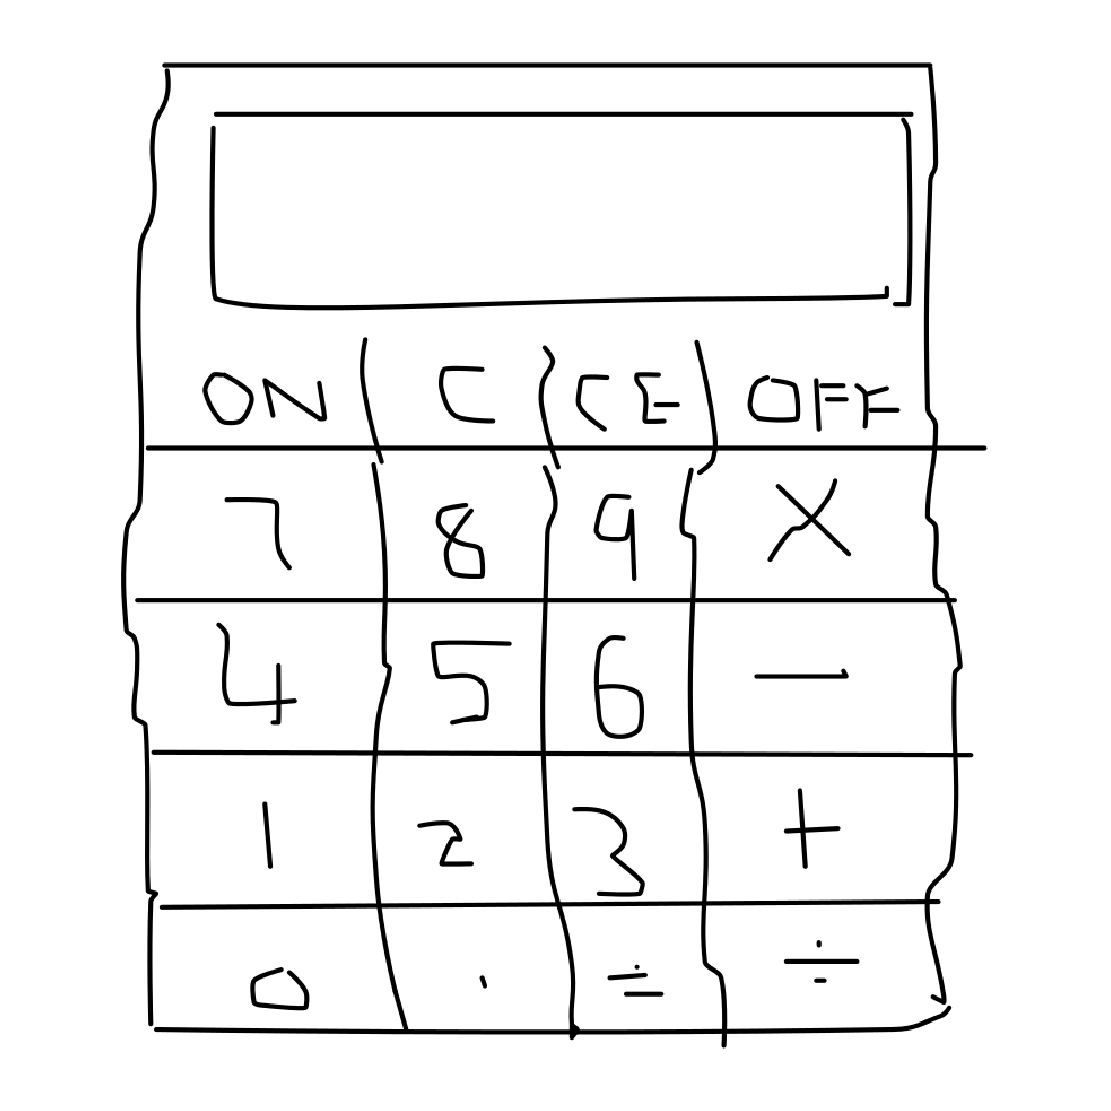 ON C CE OFF
7 8 9 ×
4 5 6 −
1 2 3 +
0 . = ÷